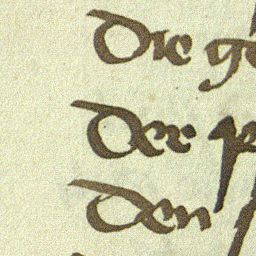 die ge
der p
den